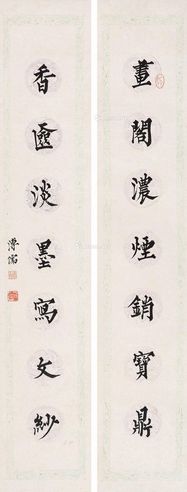 畫閣濃煙銷寶鼎
香匳淡墨寫文紗
溥儒